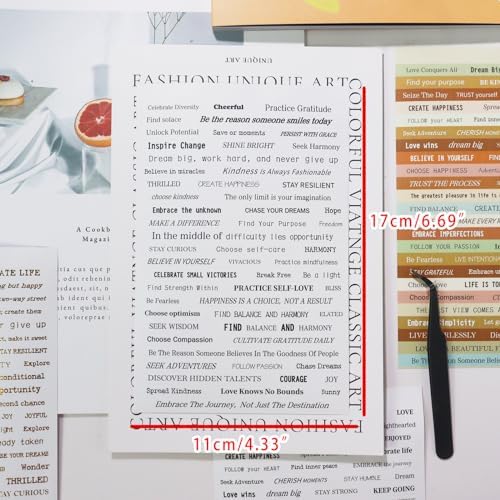 UNIQUE ART
FASHION UNIQUE ART
COLORFUL VIATNGE CLASSIC ART
Celebrate Diversity Cheerful Practice Gratitude
Find solace Be the reason someone smiles today
Unlock Potential Save or moments PERSIST WITH GRACE
Inspire Change SHINE BRIGHT Seek Harmony
Dream big, work hard, and never give up
Believe in miracles Kindness is Always Fashionable
THRILLED CREATE HAPPINESS STAY RESILIENT
choose kindness The only limit is your imagination
Embrace the unknown CHASE YOUR DREAMS Hope
MAKE A DIFFERENCE Find Your Purpose Freedom
In the middle of difficulty lies opportunity
STAY CURIOUS Choose self-care HARMONY
BELIEVE IN YOURSELF VIVACIOUS Practice mindfulness
CELEBRATE SMALL VICTORIES Break Free Be a light
Find Strength Within PRACTICE SELF-LOVE BLISS
Be Fearless HAPPINESS IS A CHOICE, NOT A RESULT
Choose optimism FIND BALANCE AND HARMONY ELATED
SEEK WISDOM FIND BALANCE AND HARMONY
Choose Compassion CULTIVATE GRATITUDE DAILY
Be The Reason Someone Believes In The Goodness Of People
SEEK ADVENTURES FOLLOW PASSION Chase Dreams
DISCOVER HIDDEN TALENTS COURAGE JOY
Spread Kindness Love Knows No Bounds Sunny
Embrace The Journey, Not Just The Destination
FASHION UNIQUE ART
17cm/6.69”
11cm/4.33”
A Cookb
Magazi
Love Conquers All Dream Big
Find your purpose BE KIN
Seize The Day TRUST yourself
CREATE HAPPINESS Spread
FOLLOW your HEART
Seek Adventure CHERISH
Love wins dream big
BELIEVE IN YOURSELF FIND
CHOOSE HAPPINESS
TRUST THE PROCESS
The greatest pleasure in life is
FIND BALANCE CREATE
EMBRACE IMPERFECTIONS
FOLLOW YOUR PASSION
Be Fearless LIVE INTENTIONA
STAY GRATEFUL Embrace un
LIFE IS TO
Choose Compassion
Embrace Simplicity Let go
LIVE FEARLESSLY
A BEAUTIFUL
Believe in Yourself
ATE LIFE
ing but happy
two-way street
create them
er give up
make it sweet
STAY RESILIENT
Explore
conditional
pportunity
second chance
JOYFUL
start
ready token
your dreams
Wonder
THRILLED
Explore
STAY CURIOUS
HARMONY LOVE
FOLLOW your HEART
Spread
Find inner peace EMBRACE the journey
Seek Adventure CHERISH MOMENTS STAY HUMBLE Dream
Love wins dream big STAY STRONG KEEP GOING